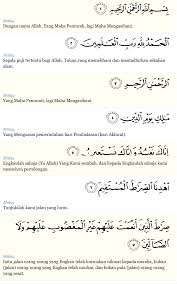 بِسْمِ اللَّهِ الرَّحْمَٰنِ الرَّحِيمِ ١
Malay
Dengan nama Allah, Yang Maha Pemurah, lagi Maha Mengasihani.
الْحَمْدُ لِلَّهِ رَبِّ الْعَالَمِينَ ٢
Malay
Segala puji tertentu bagi Allah, Tuhan yang memelihara dan mentadbirkan sekalian
alam.
الرَّحْمَٰنِ الرَّحِيمِ ٣
Malay
Yang Maha Pemurah, lagi Maha Mengasihani.
مَالِكِ يَوْمِ الدِّينِ ٤
Malay
Yang Menguasai pemerintahan hari Pembalasan (hari Akhirat).
إِيَّاكَ نَعْبُدُ وَإِيَّاكَ نَسْتَعِينُ ٥
Malay
Engkaulah sahaja (Ya Allah) Yang Kami sembah, dan kepada Engkaulah sahaja kami
memohon pertolongan.
اهْدِنَا الصِّرَاطَ الْمُسْتَقِيمَ ٦
Malay
Tunjukilah kami jalan yang lurus.
صِرَاطَ الَّذِينَ أَنْعَمْتَ عَلَيْهِمْ غَيْرِ الْمَغْضُوبِ عَلَيْهِمْ وَلَا
الضَّالِّينَ ٧
Malay
Iaitu jalan orang-orang yang Engkau telah kurniakan nikmat kepada mereka, bukan
(jalan) orang-orang yang Engkau telah murkai, dan bukan pula (jalan) orang-orang
yang sesat.